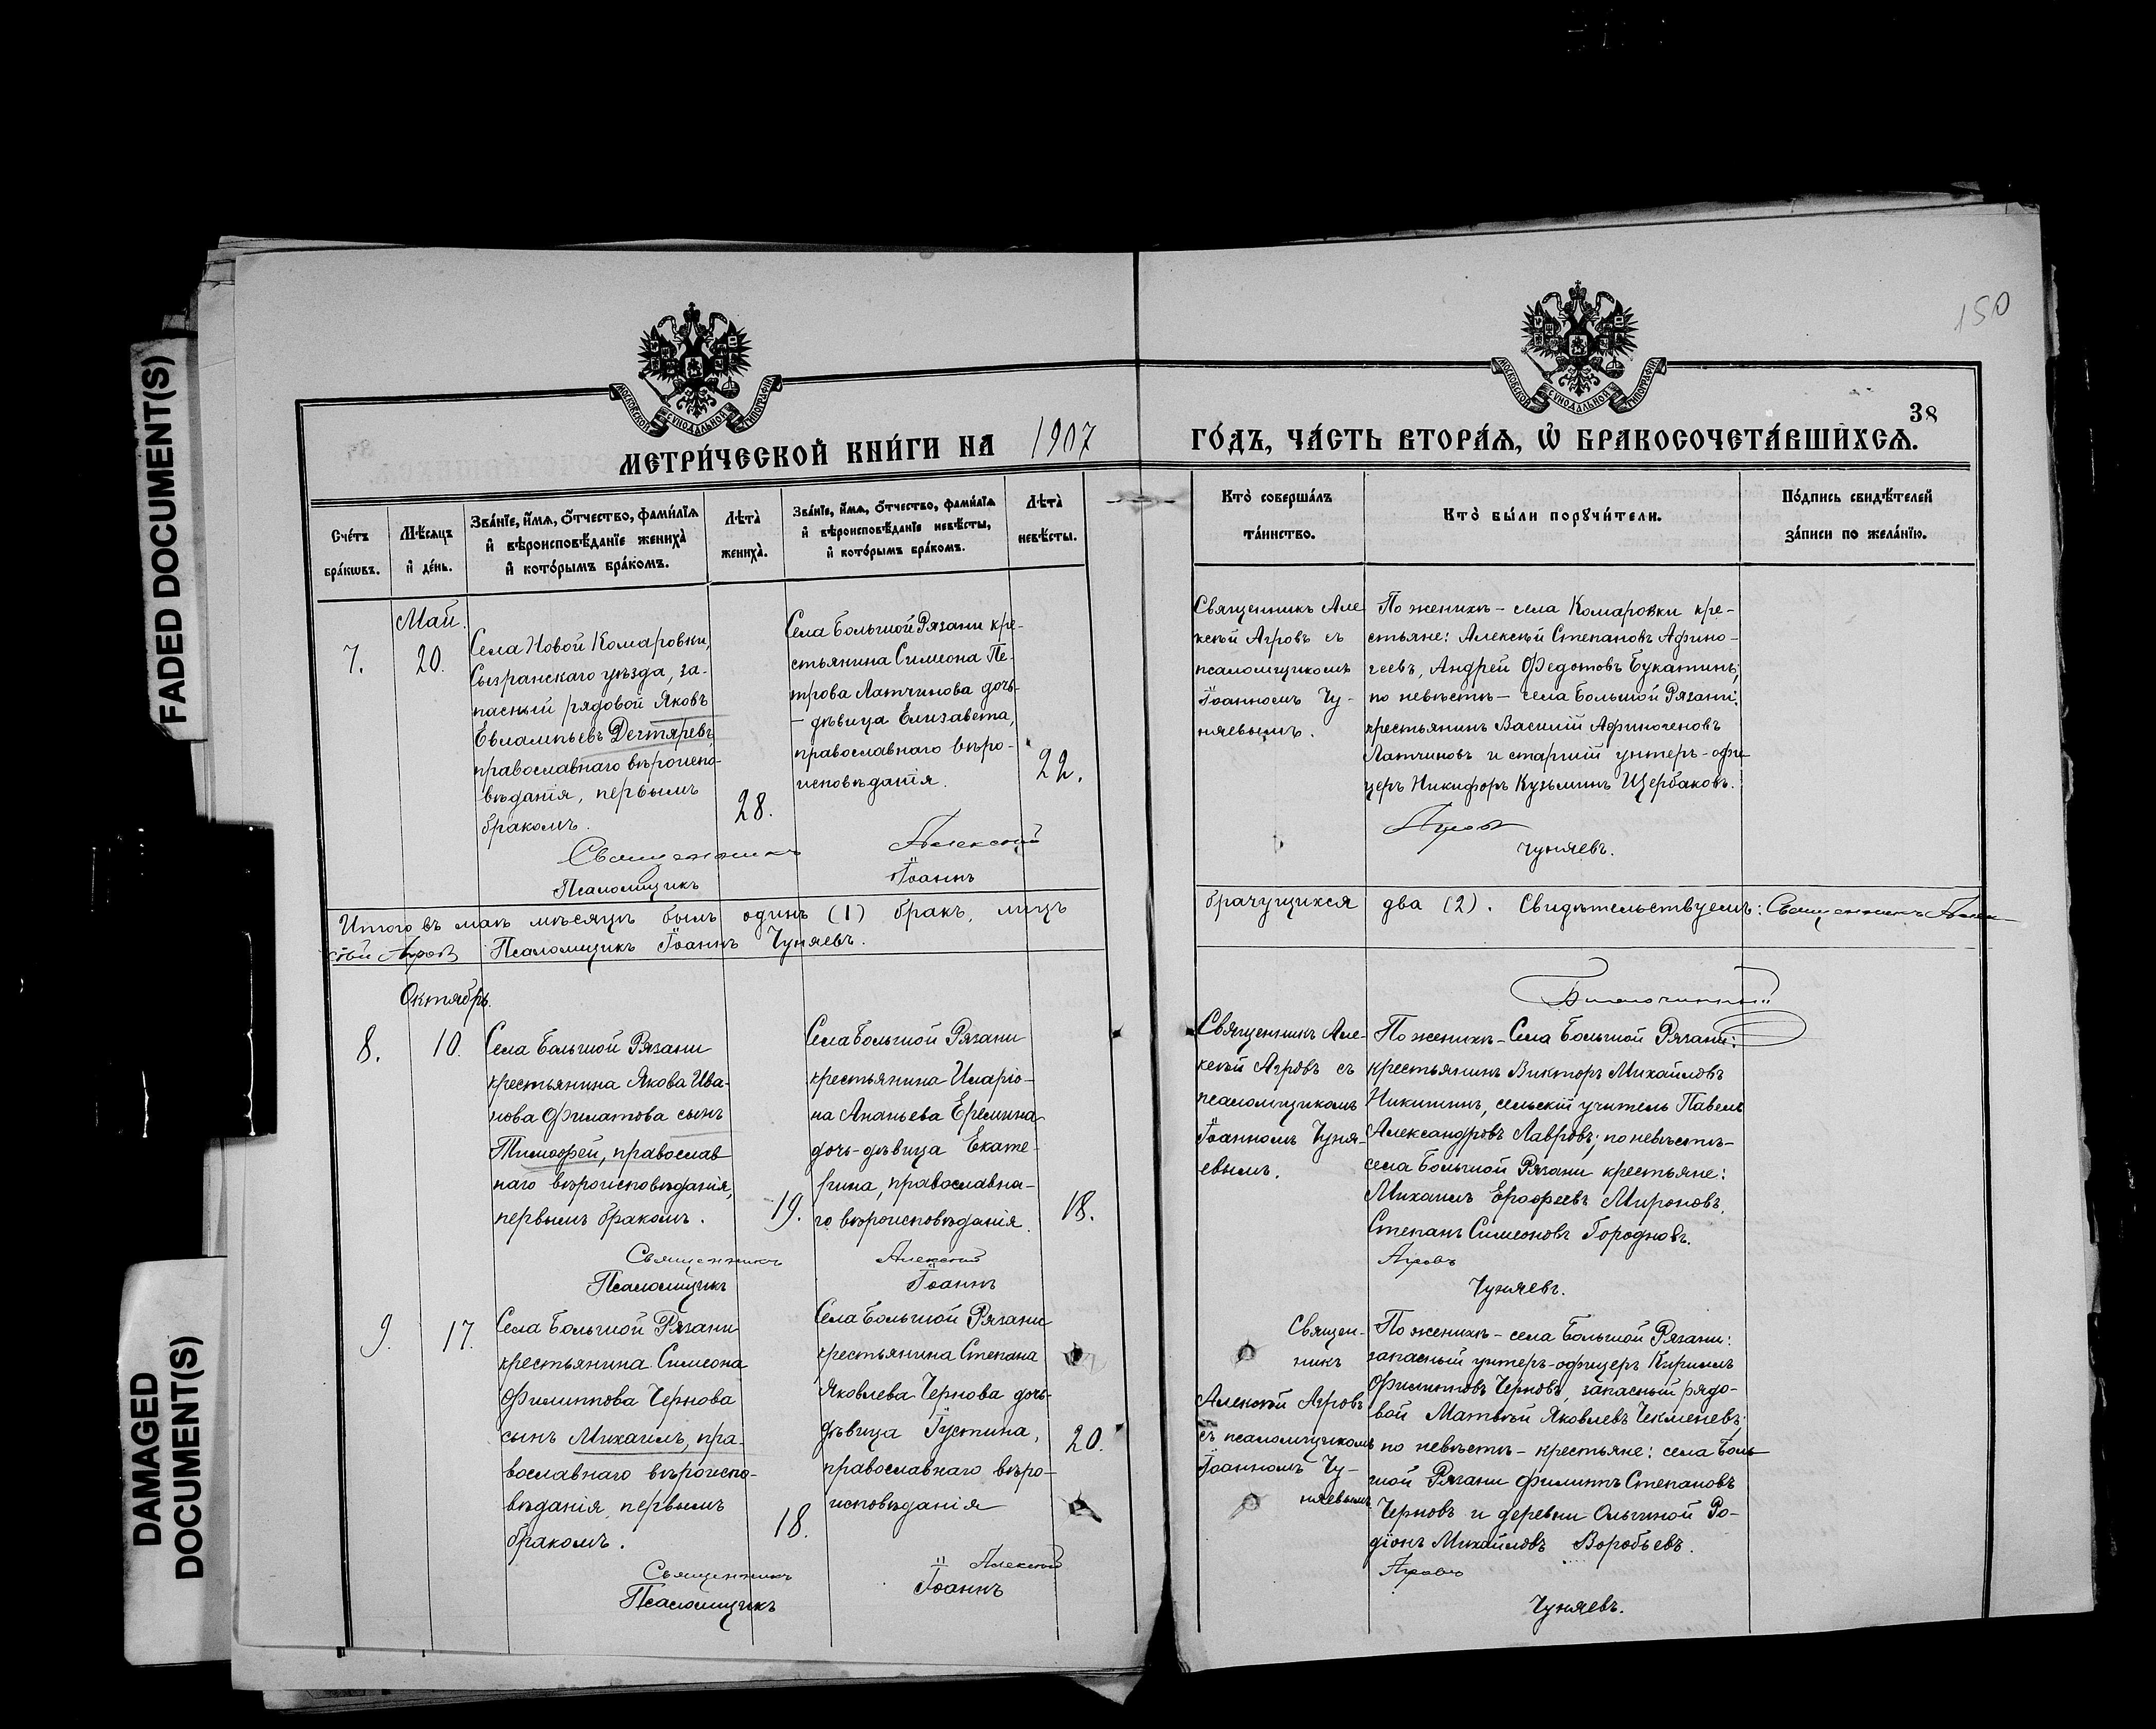 FADED DOCUMENT(S)
DAMAGED
DOCUMENT(S)
150
38
МОСКОВСКОЙ СѴНОДАЛЬНОЙ ТИПОГРАФІИ
МОСКОВСКОЙ СѴНОДАЛЬНОЙ ТИПОГРАФІИ
МЕТРИ́ЧЕСКОЙ КНИ́ГИ НА 1907
ГО́ДЪ, ЧА́СТЬ ВТОРА́Ѧ, Ѡ҆ БРАКОСОЧЕТА́ВШИХСѦ.
Сче́тъ
бра́кѡвъ.
Мѣ́сяцъ
и҆ де́нь.
Зва́нїе, и҆́мѧ, о҆́тчество, фамѝлїѧ
и҆ вѣроисповѣ́данїе жениха̀
и҆ кото́рымъ бра́комъ.
Лѣта̀
жениха̀.
Зва́нїе, и҆́мѧ, о҆́тчество, фамѝлїѧ
и҆ вѣроисповѣ́данїе невѣ́сты,
и҆ кото́рымъ бра́комъ.
Лѣта̀
невѣ́сты.
Кто̀ соверша́лъ
та́инство.
Кто̀ бы́ли порꙋчи́тели.
По́дпись свидѣ́телей
за́писи по жела́нїю.
Май.
7.
20.
Села Новой Комаровки,
Сызранскаго уѣзда, за-
пасный рядовой Яковъ
Евлампьевъ Дегтяревъ,
православнаго вѣроиспо-
вѣданія, первымъ
бракомъ.
28.
Села Большой Рязани кре-
стьянина Симеона Пе-
трова Латчинова дочь-
– дѣвица Елизавета,
православнаго вѣро-
исповѣданія.
22.
Священникъ Але
ксѣй Агровъ съ
псаломщикомъ
Іоанномъ Чу-
няевымъ.
По женихѣ – села Комаровки кре-
стьяне: Алексѣй Степановъ Афино-
геевъ, Андрей Федотовъ Букатинъ;
по невѣстѣ – села Большой Рязани:
крестьянинъ Василій Афиногеновъ
Латчиновъ и старшій унтеръ-офи
церъ Никифоръ Кузьминъ Щербаковъ.
Священникъ Алексѣй Агровъ
Псаломщикъ Іоаннъ Чуняевъ.
Итого въ маѣ мѣсяцѣ былъ одинъ (1) бракъ, лицъ брачущихся два (2). Свидѣтельствуемъ: Священникъ Алек
сѣй Агровъ Псаломщикъ Іоаннъ Чуняевъ.
Благочинный
Октябрь.
8.
10.
Села Большой Рязани
крестьянина Якова Ива-
нова Филатова сынъ
Тимофей, православ
наго вѣроисповѣданія,
первымъ бракомъ.
19.
Села Большой Рязани
крестьянина Иларіо-
на Ананьева Еремина
дочь-дѣвица Екате-
рина, православна-
го вѣроисповѣданія.
18.
Священникъ Але-
ксѣй Агровъ съ
псаломщикомъ
Іоанномъ Чуня-
евымъ.
По женихѣ – Села Большой Рязани:
крестьянинъ Викторъ Михайловъ
Никитинъ, сельскій учитель Павелъ
Александровъ Лавровъ; по невѣстѣ –
села Большой Рязани крестьяне:
Михаилъ Ерофеевъ Мироновъ,
Степанъ Симеоновъ Городновъ.
Священникъ Алексѣй Агровъ
Псаломщикъ Іоаннъ Чуняевъ.
9.
17.
Села Большой Рязани
крестьянина Симеона
Филиппова Чернова
сынъ Михаилъ, пра-
вославнаго вѣроиспо-
вѣданія, первымъ
бракомъ.
18.
Села Большой Рязани
крестьянина Степана
Яковлева Чернова дочь-
дѣвица Іустина,
православнаго вѣро-
исповѣданія
20.
Священ-
никъ
Алексѣй Агровъ
съ псаломщикомъ
Іоанномъ Чу-
няевымъ
По женихѣ – села Большой Рязани:
запасный унтеръ-офицеръ Кириллъ
Филипповъ Черновъ, запасный рядо-
вой Матвѣй Яковлевъ Чекменевъ;
по невѣстѣ – крестьяне: села Боль
шой Рязани Филиппъ Степановъ
Черновъ и деревни Ольгиной Ро-
діонъ Михайловъ Воробьевъ.
Священникъ Алексѣй Агровъ
Псаломщикъ Іоаннъ Чуняевъ.